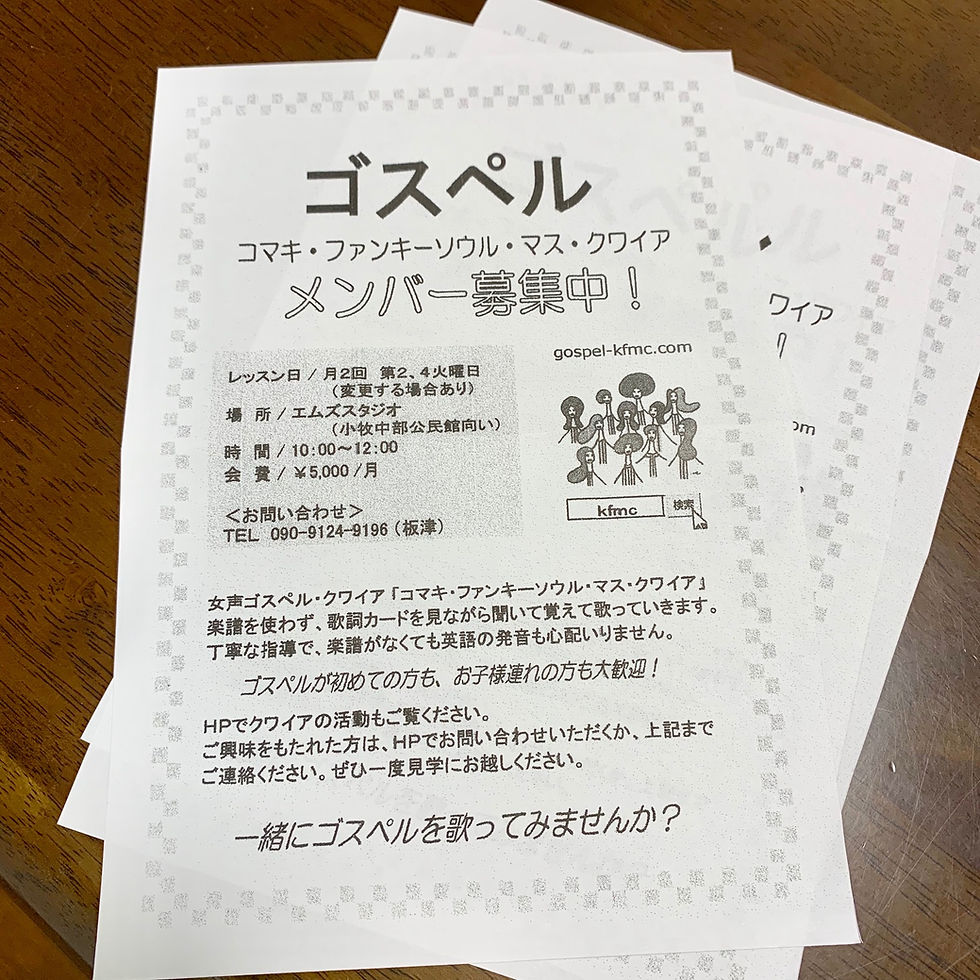 ゴスペル
コマキ・ファンキーソウル・マス・クワイア
メンバー募集中！
gospel-kfmc.com
レッスン日 / 月2回　第2、4火曜日
（変更する場合あり）
場　所 / エムズスタジオ
（小牧中部公民館向い）
時　間 / 10：00～12：00
会　費 / ￥5,000 /月
＜お問い合わせ＞
TEL　090-9124-9196（板津）
kfmc 検索
女声ゴスペル・クワイア『コマキ・ファンキーソウル・マス・クワイア』
楽譜を使わず、歌詞カードを見ながら聞いて覚えて歌っていきます。
丁寧な指導で、楽譜がなくても英語の発音も心配いりません。
ゴスペルが初めての方も、お子様連れの方も大歓迎！
HPでクワイアの活動もご覧ください。
ご興味をもたれた方は、HPでお問い合わせいただくか、上記まで
ご連絡ください。ぜひ一度見学にお越しください。
一緒にゴスペルを歌ってみませんか？
ワイア
om